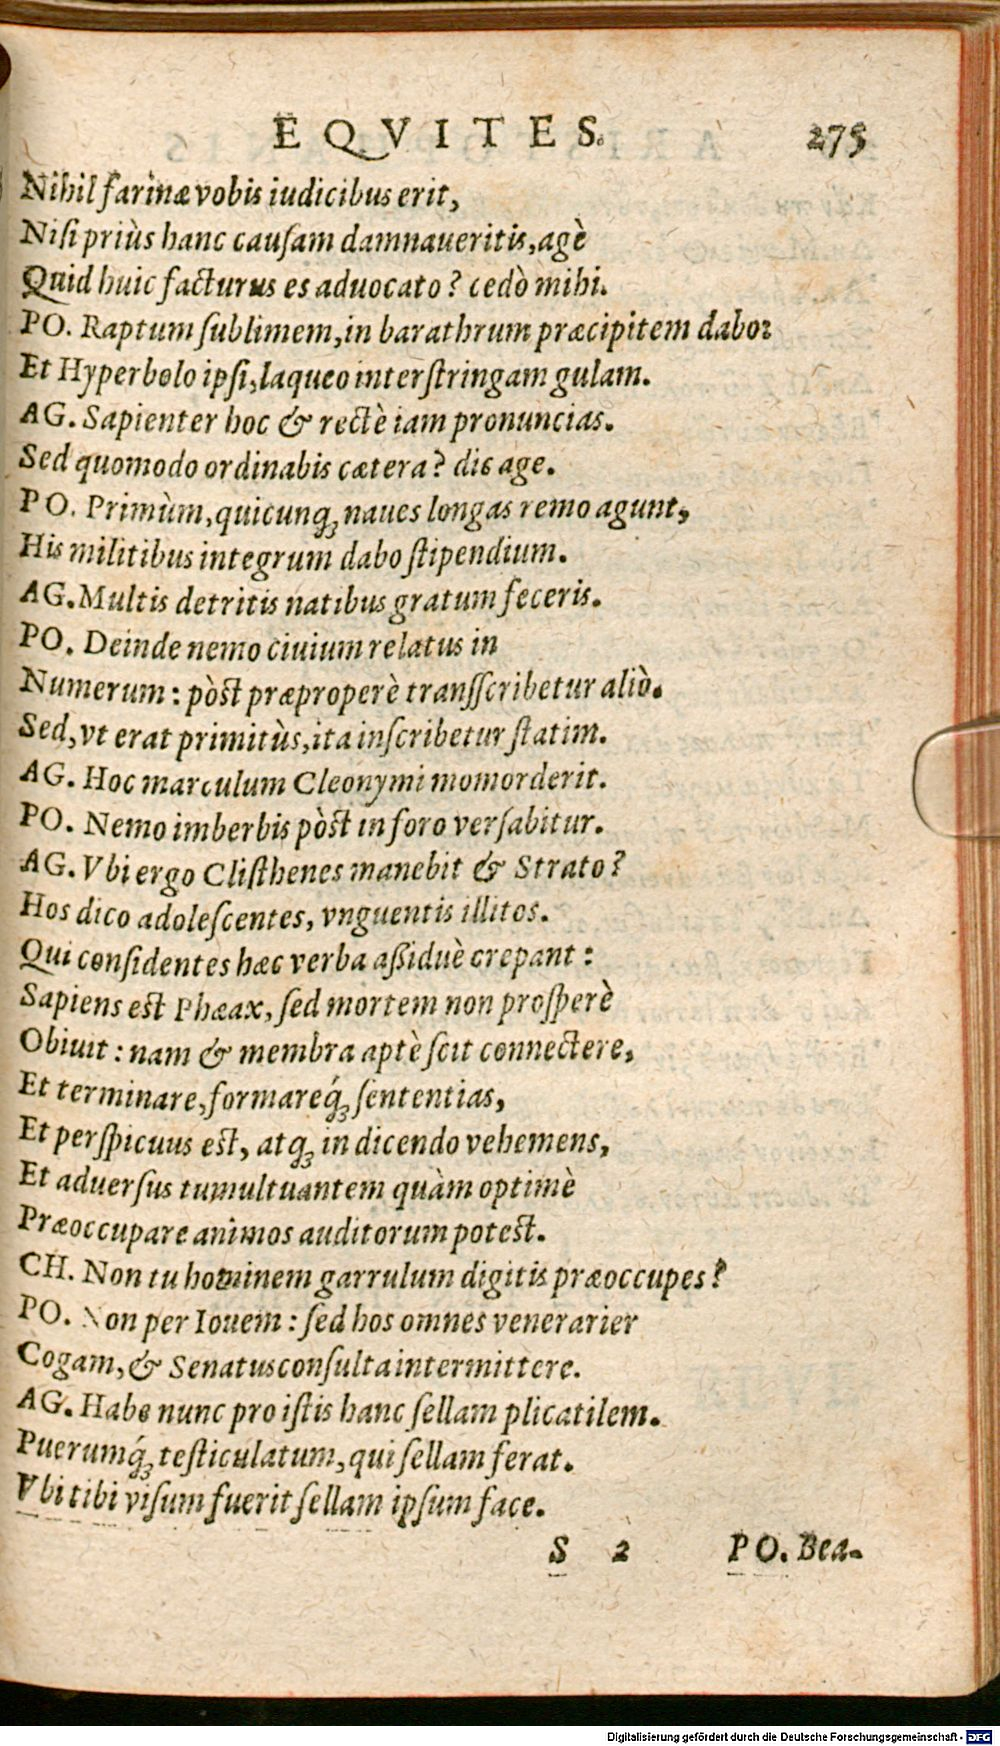 EQVITES. 275
Nihil farinæ vobis iudicibus erit,
Nisi priùs hanc causam damnaueritis, agè
Quid huic facturus es aduocato? cedò mihi.
PO. Raptum sublimem, in barathrum præcipitem dabo:
Et Hyperbolo ipsi, laqueo interstringam gulam.
AG. Sapienter hoc & rectè iam pronuncias.
Sed quomodo ordinabis cætera? dic age.
PO. Primùm, quicunq; naues longas remo agunt,
His militibus integrum dabo stipendium.
AG. Multis detritis natibus gratum feceris.
PO. Deinde nemo ciuium relatus in
Numerum: pòst præproperè transscribetur aliò.
Sed, vt erat primitùs, ita inscribetur statim.
AG. Hoc marculum Cleonymi momorderit.
PO. Nemo imberbis pòst in foro versabitur.
AG. Vbi ergo Clisthenes manebit & Strato?
Hos dico adolescentes, vnguentis illitos.
Qui considentes hæc verba assiduè crepant:
Sapiens est Phæax, sed mortem non prosperè
Obiuit: nam & membra aptè scit connectere,
Et terminare, formareq́; sententias,
Et perspicuus est, atq; in dicendo vehemens,
Et aduersus tumultuantem quàm optimè
Præoccupare animos auditorum potest.
CH. Non tu hominem garrulum digitis præoccupes?
PO. Non per Iouem: sed hos omnes venerarier
Cogam, & Senatusconsulta intermittere.
AG. Habe nunc pro istis hanc sellam plicatilem.
Puerumq́; testiculatum, qui sellam ferat.
Vbi tibi visum fuerit sellam ipsum face.
S 2 PO. Bea-
Digitalisierung gefördert durch die Deutsche Forschungsgemeinschaft - DFG